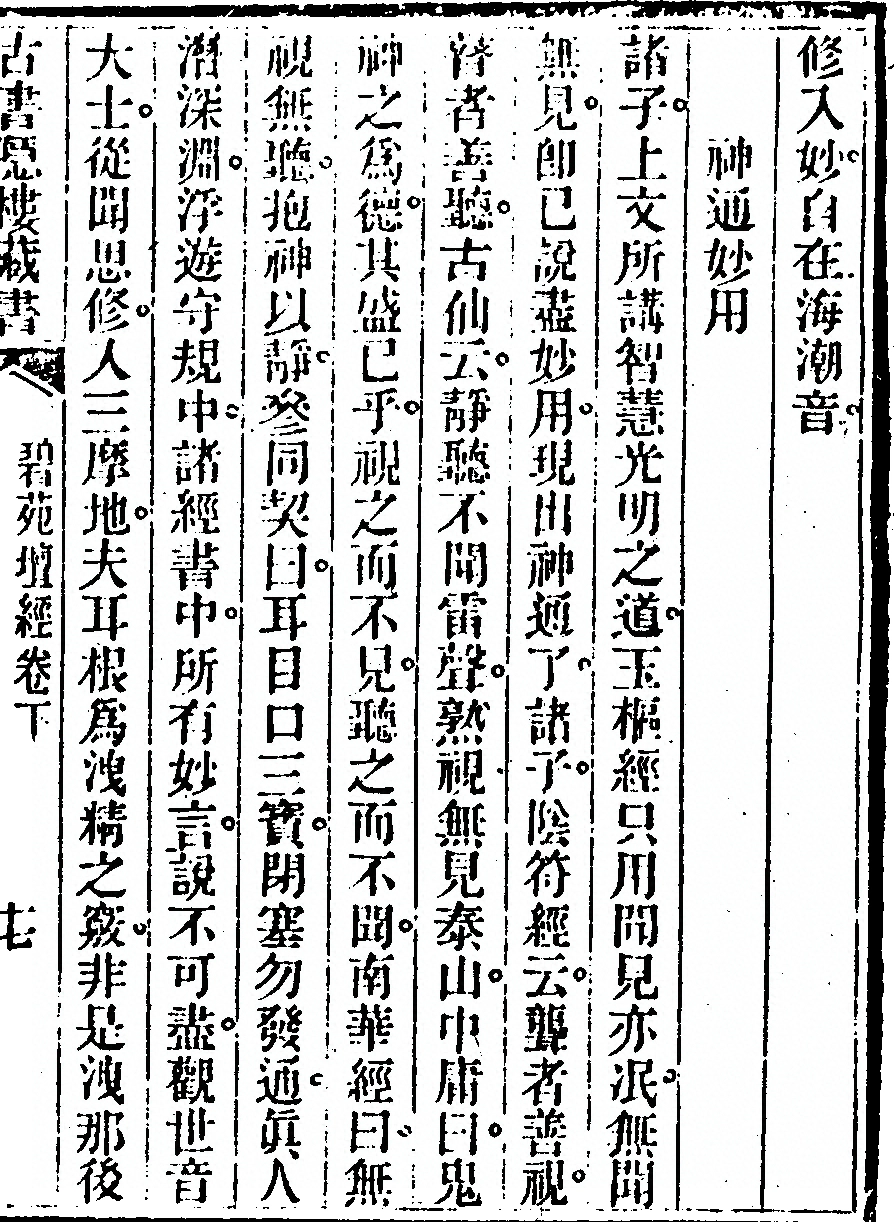 修入妙。自在海潮音。
神通妙用
諸子。上文所講智慧光明之道。玉樞經只用聞見亦泯。無聞
無見。即已說盡妙用。現出神通了。諸子。陰符經云。聾者善視。
瞽者善聽。古仙云。靜聽不聞雷聲。熟視無見泰山。中庸曰。鬼
神之爲德。其盛已乎。視之而不見。聽之而不聞。南華經曰。無
視無聽。抱神以靜。參同契曰。耳目口三寶。閉塞勿發通。眞人
潛深淵。浮遊守規中。諸經書中。所有妙言。說不可盡。觀世音
大士。從聞思修。入三摩地。夫耳根爲洩精之竅。非是洩那後
古書隱樓藏書
碧苑壇經卷下
十七